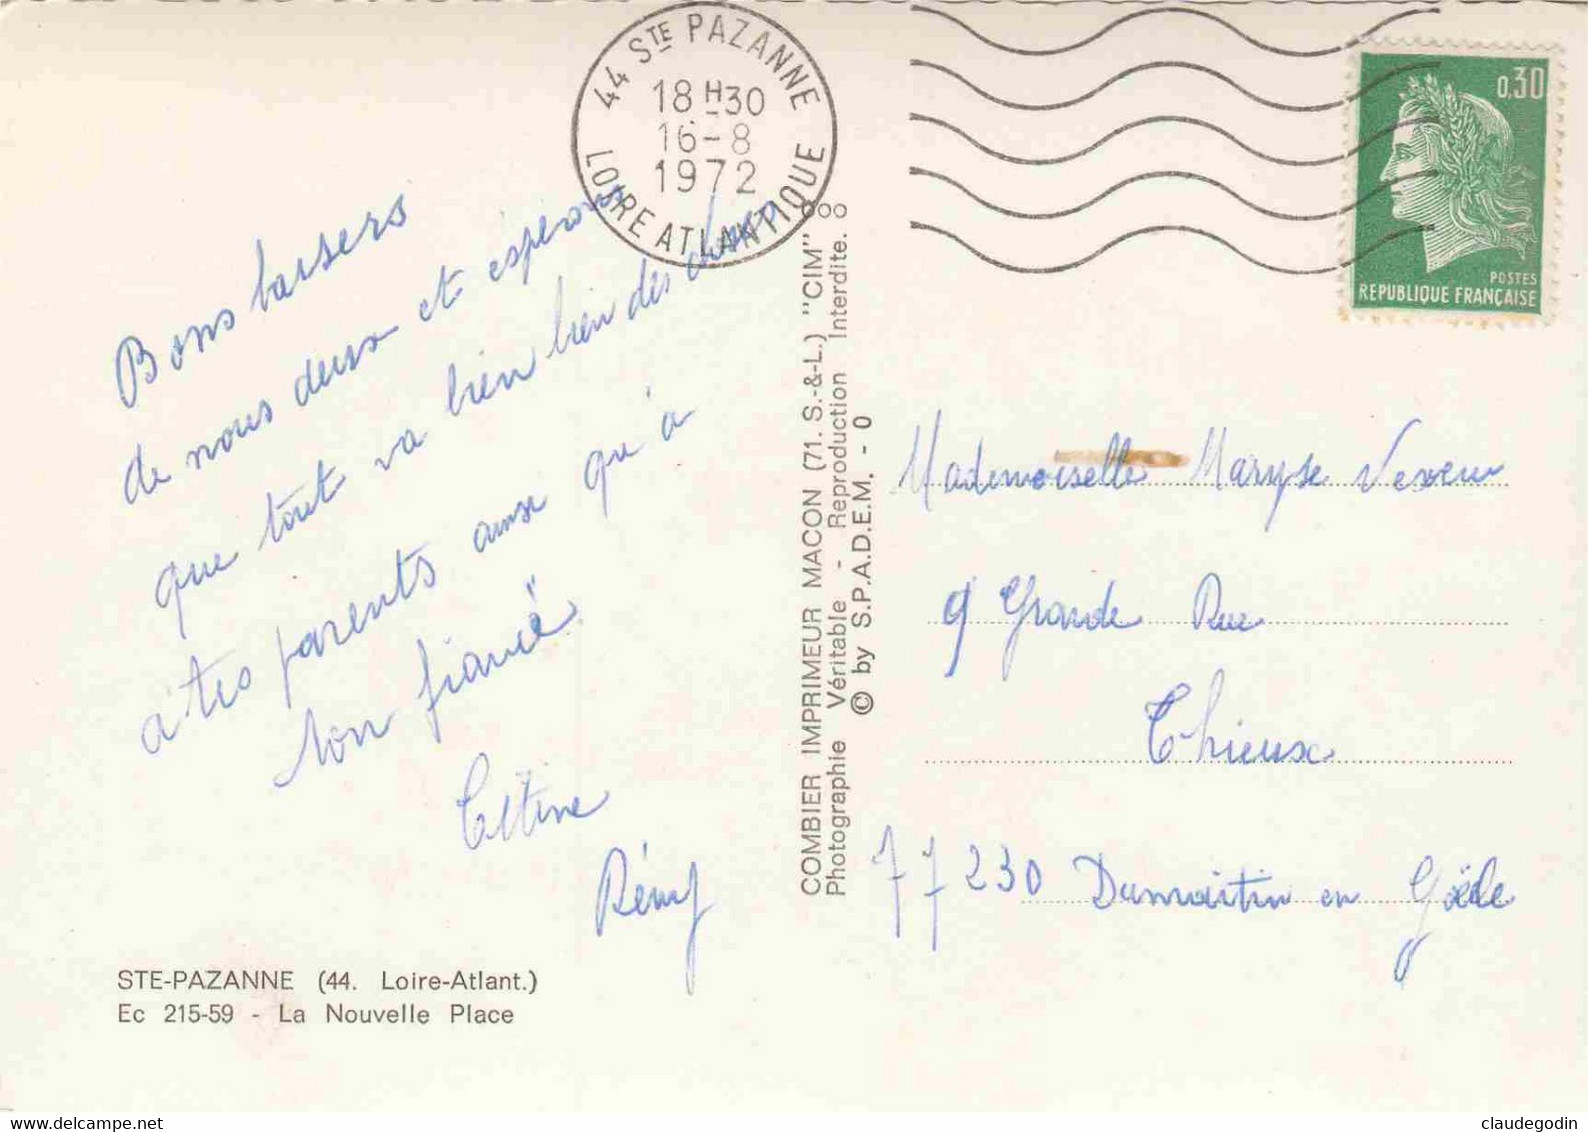 44 STE PAZANNE
18 H30
16-8
1972
LOIRE ATLANTIQUE
0,30
POSTES
REPUBLIQUE FRANÇAISE
Bons baisers
de nous deux et espérons
que tout va bien bien des choses
à tes parents ainsi qu'à
ton fiancé
Rémy
STE-PAZANNE (44. Loire-Atlant.)
Ec 215-59 - La Nouvelle Place
COMBIER IMPRIMEUR MACON (71. S.-&-L.) "CIM"
Photographie Véritable - Reproduction Interdite.
© by S.P.A.D.E.M. - 0
Mademoiselle Maryse
9 Grande Rue
Thieux
77230 Dammartin en Goële
www.delcampe.net
claudegodin